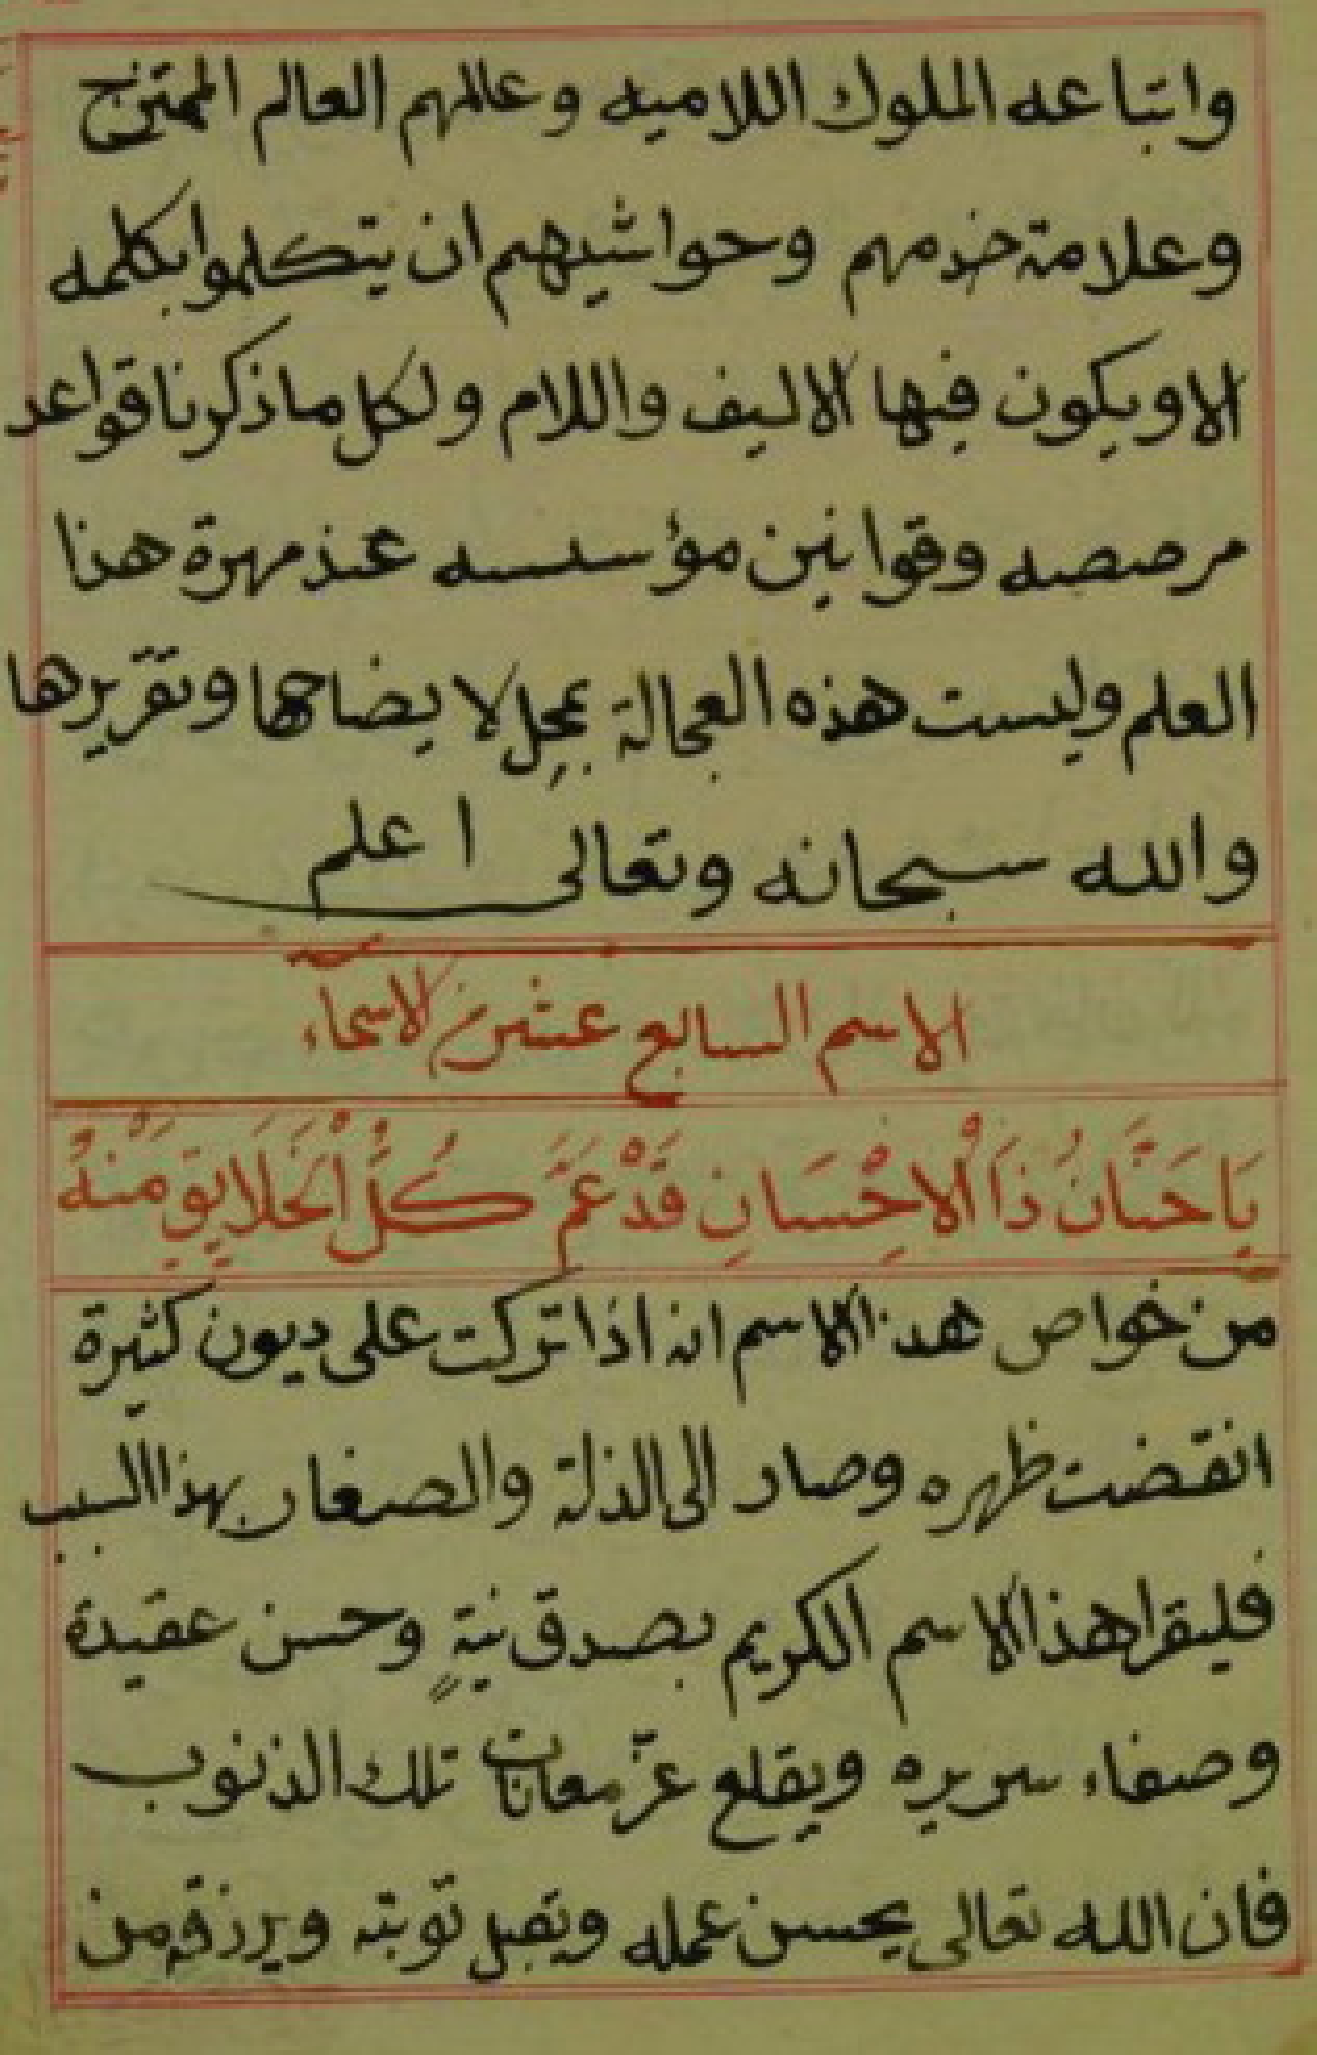 واتباعه الملوك اللاميه وعالمهم العالم الممتزج
وعلامة خدمهم وحواشيهم ان يتكلموا بكلمه
الا ويكون فيها الاليف واللام ولكل ما ذكرنا قواعد
مرصصه وقوانين مؤسسه عند مهرة هذا
العلم وليست هذه العجالة بمحل لايضاحها وتقريرها
والله سبحانه وتعالى اعلم
الاسم السابع عشر من الاسماء
يَا حَنَّانُ ذَا اْلاِحْسَانِ قَدْ عَمَّ كُلَّ اْلخَلَايِقِ مَنْهُ
من خواص هذا الاسم انه اذا تركت على ديون كثيرة
انقضت ظهره وصار الى الذلة والصغار بهذا السبب
فليقرا هذا الاسم الكريم بصدق نيةٍ وحسن عقيدة
وصفاء سريره ويقلع عن معانات تلك الذنوب
فان الله تعالى يحسن عمله ويقبل توبته ويرزقه من